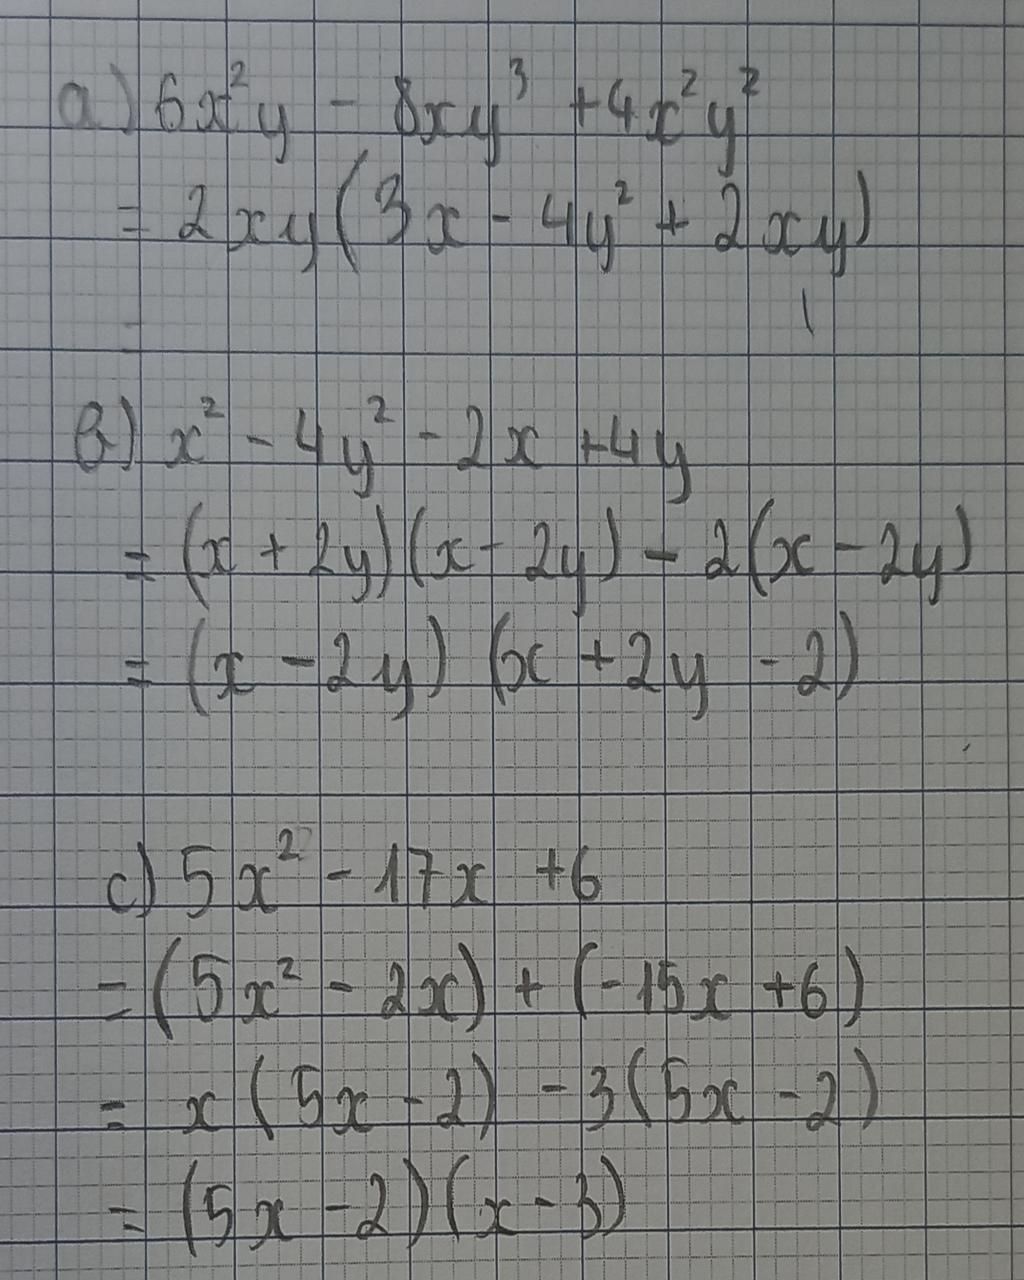 a) 6x²y - 8xy³ +4x²y²
= 2xy(3x - 4y² + 2xy)
b) x² - 4y² - 2x +4y
= (x + 2y)(x - 2y) - 2(x - 2y)
= (x - 2y) (x + 2y - 2)
c) 5x² - 17x +6
= (5x² - 2x) + (-15x +6)
= x(5x - 2) - 3(5x - 2)
= (5x - 2)(x - 3)